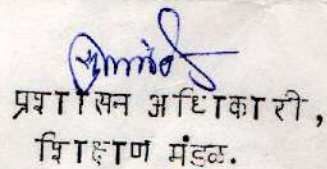 प्रशासन अधिकारी,
शिक्षण मंडळ.